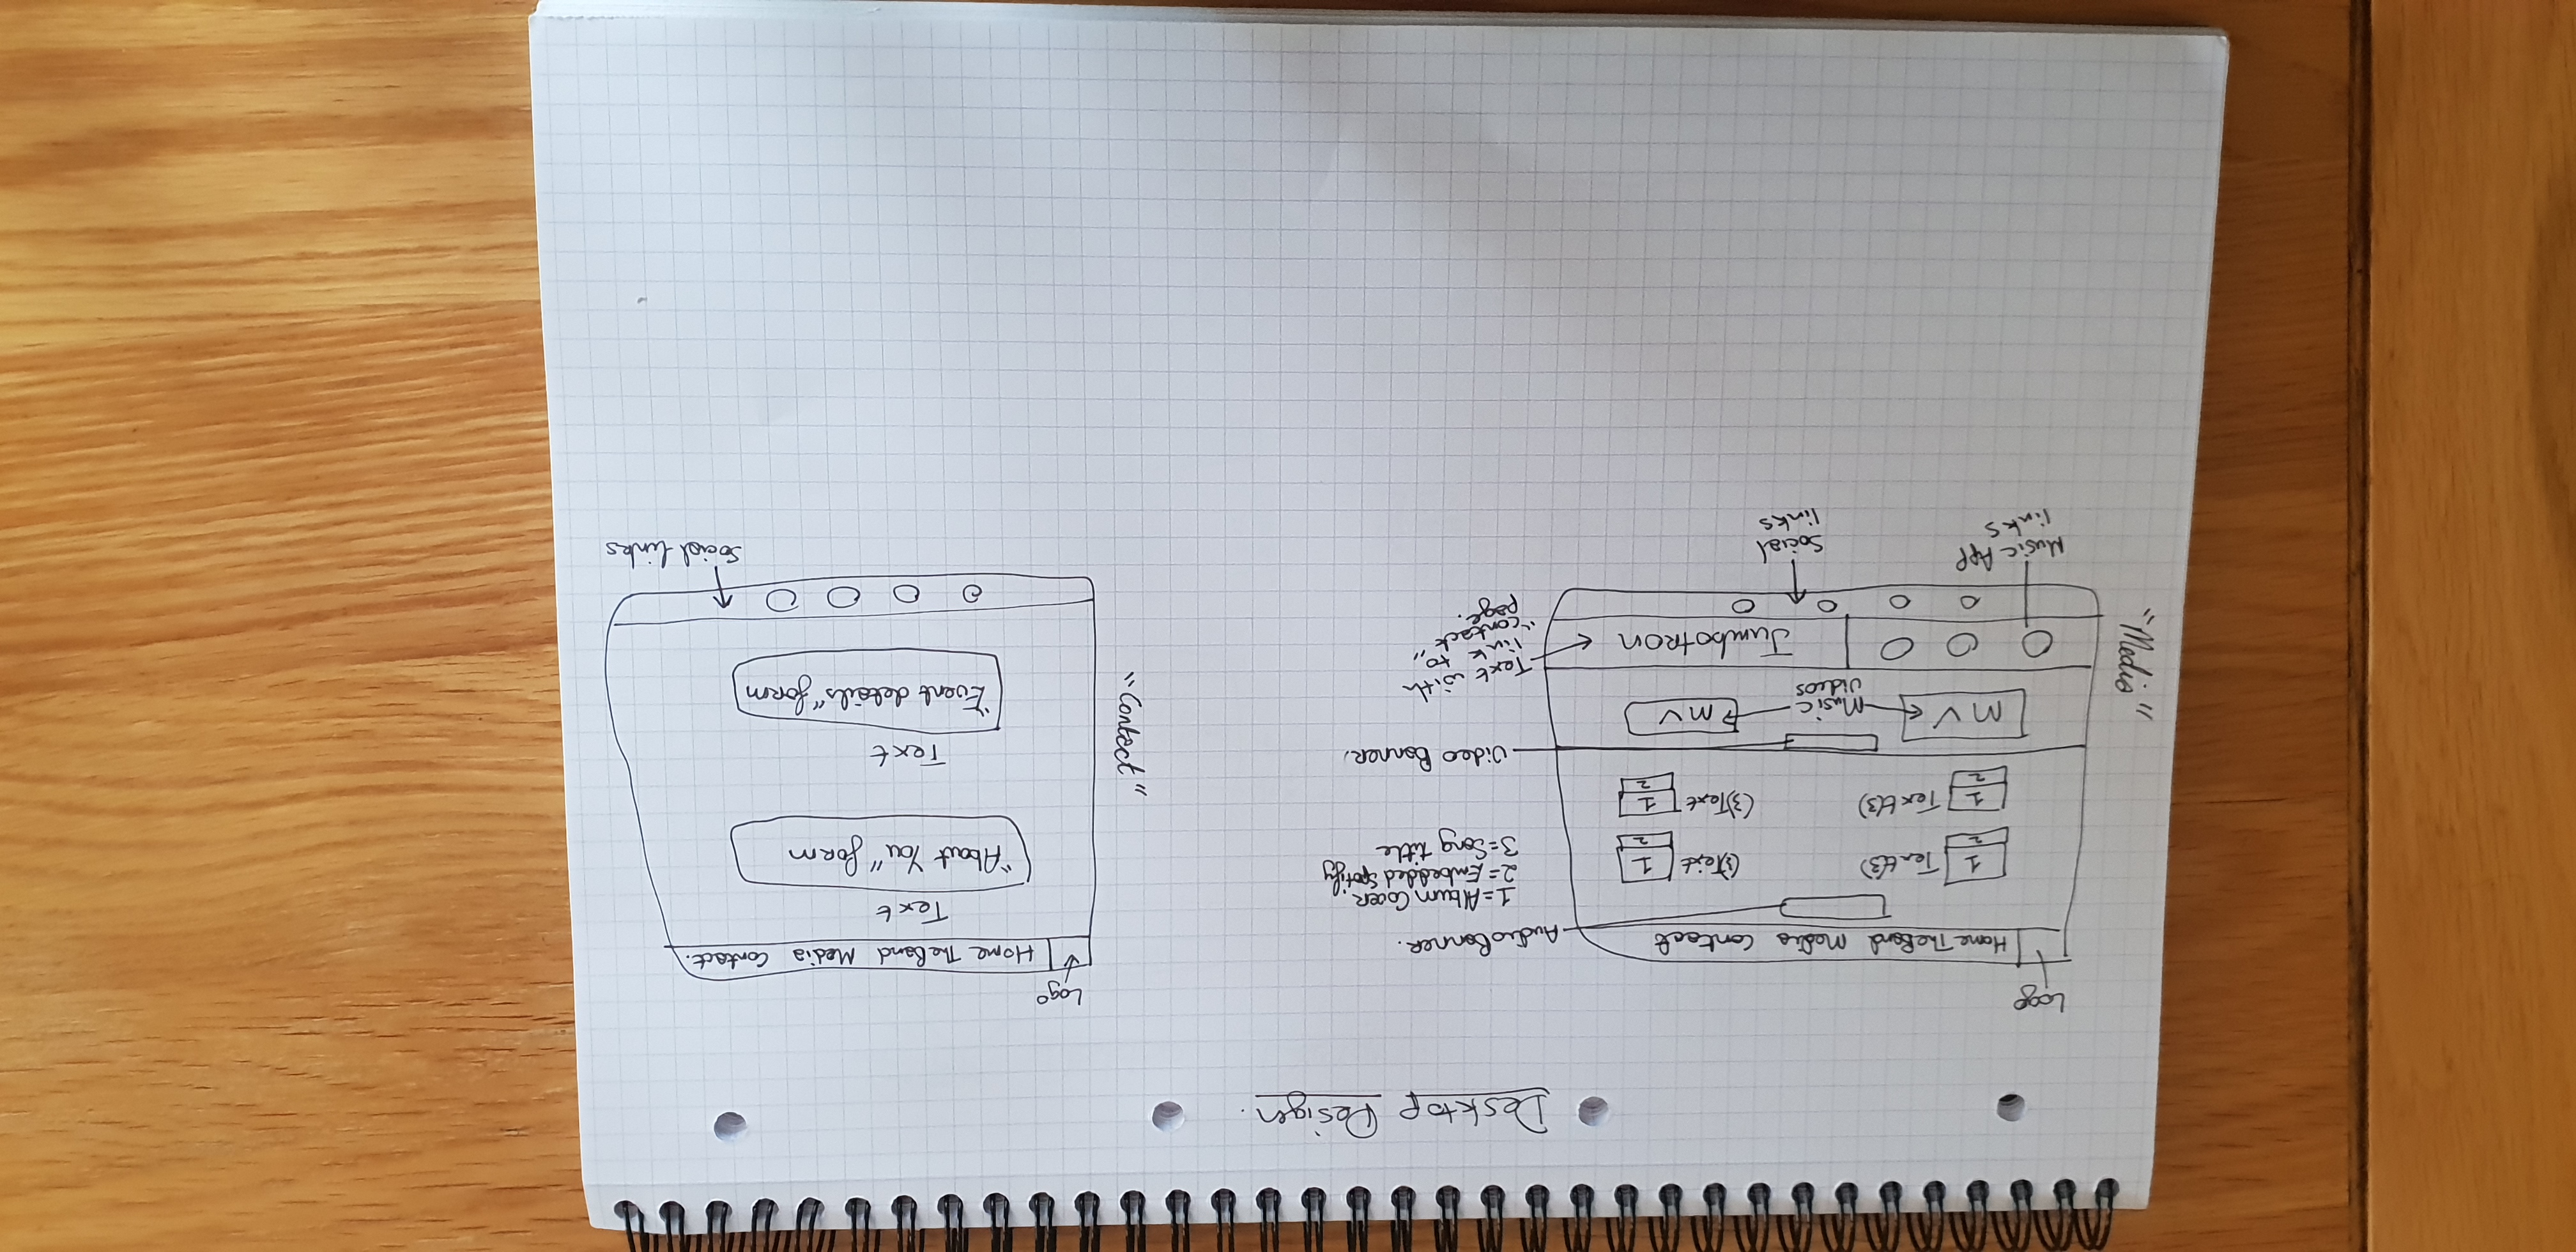 Desktop Design.
Logo
Home The Band Media Contact
Audio Banner.
1 = Album Cover
2 = Embedded Spotify
3 = Song title
1 Text(3) (3)Text 1
2 2
1 Text(3) (3)Text 1
2 2
Video Banner.
MV Music Videos MV
Jumbotron
Text with
link to
"contact"
page.
Music App
links
Social
links
"Media"
Logo
Home The Band Media Contact.
Text
"About You" form
Text
"Event details" form
Social links
"Contact"